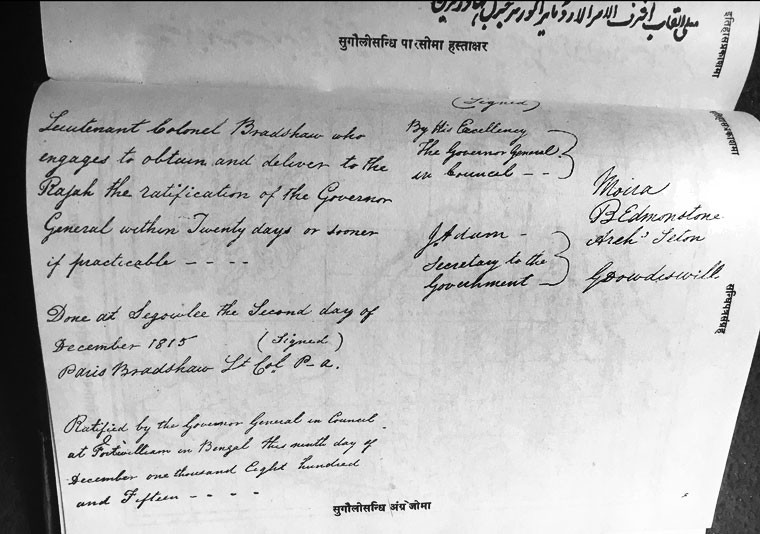 معلی القاب اشرف الامرا لارد مایر کورنر جنرل بهادر
इतिहासप्रकाशमा
सुगौलीसन्धि पारसीमा हस्ताक्षर
Lieutenant Colonel Bradshaw who
engages to obtain and deliver to the
Rajah the ratification of the Governor
General within Twenty days or sooner
if practicable - - - -
Done at Segowlee the Second day of
December 1815 (Signed)
Paris Bradshaw Lt Col. P-a.
Ratified by the Governor General in Council
at Fortwilliam in Bengal this ninth day of
December one thousand Eight hundred
and Fifteen - - - -
(Signed)
By His Excellency
The Governor General
in Council - -
J. Adam -
Secretary to the
Government -
Moira
B Edmonstone
Archd Seton
G Dowdeswill
सन्धिपत्रसंग्रह
सुगौलीसन्धि अंग्रेजीमा